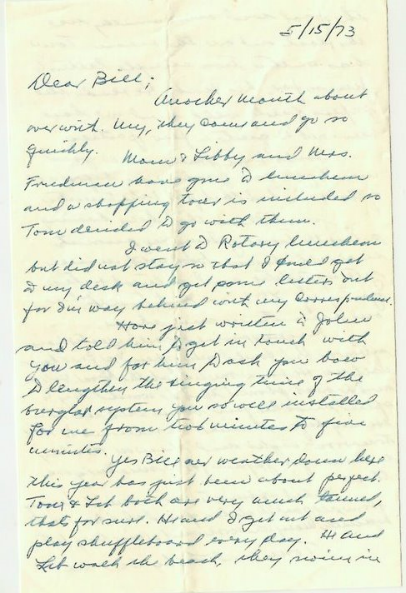 5/15/73
Dear Bill;
Another month about
over with. My, they come and go so
quickly. Mom & Libby and Mrs.
Friedman have gone to luncheon
and a shopping tour is included so
Tom decided to go with them.
I went to Rotary luncheon
but did not stay so that I could get
to my desk and get some letters out
for I'm way behind with my correspondence.
Have just written to John
and told him to get in touch with
you and for him to ask you how
to lengthen the ringing time of the
burglar system you so well installed
for me from two minutes to five
minutes.
Yes Bill our weather down here
this year has just been about perfect.
Tom & Lib both are very much tanned,
that's for sure. He and I get out and
play shuffleboard every day. He and
Lib walk the beach, they swim in